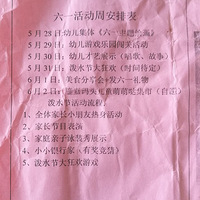 六一活动周安排表
5月28日 幼儿集体《六一主题绘画》
5月29日:幼儿游戏乐园闯关活动
5月30日:幼儿才艺展示(唱歌、故事)
5月31日:泼水节大狂欢(时间待定)
6月1日:美食分享会+发六一礼物
6月2日:
泼水节活动流程:
1、全体家长小朋友热身活动
2、家长节目表演
3、家庭亲子泳装秀展示
4、小小银行家(有奖竞猜)
5、泼水节大狂欢游戏